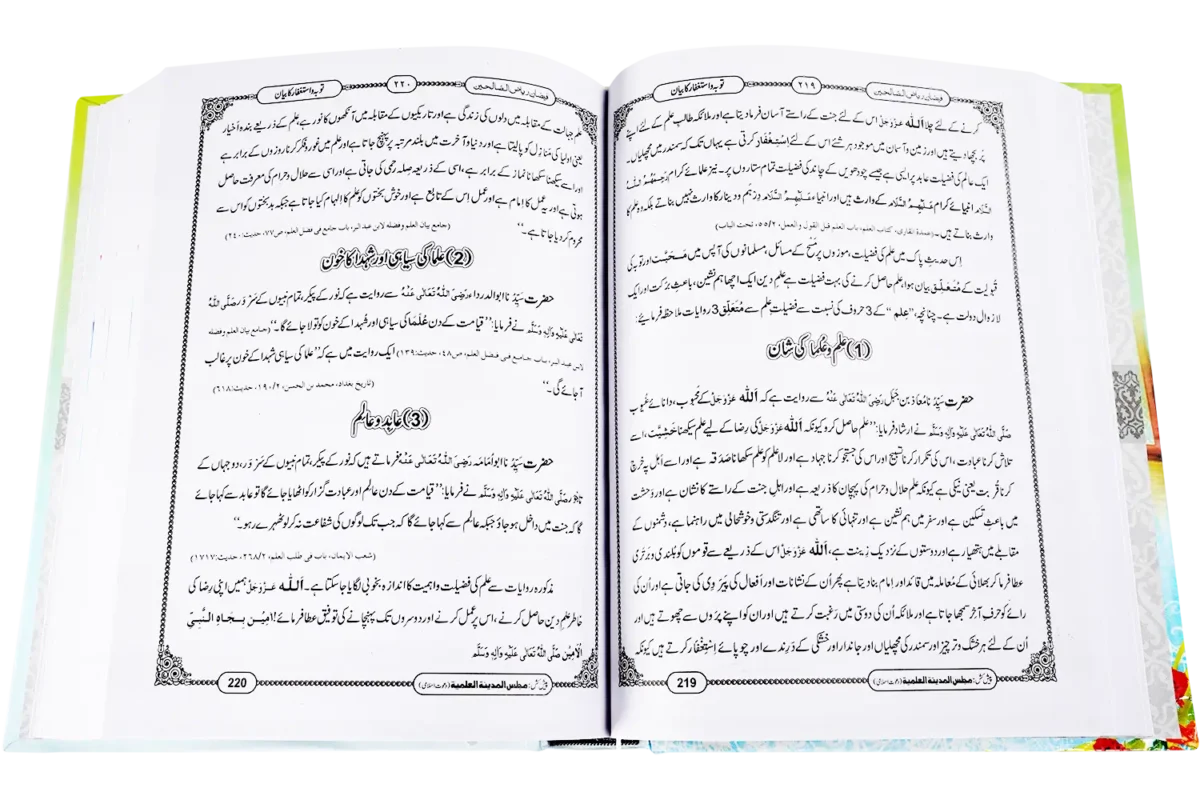 فیضانِ ریاض الصالحین
۲۱۹
توبہ و استغفار کا بیان
کرنے کے لئے چلا اللہ عَزَّوَجَلَّ اس کے لئے جنت کے راستے آسان فرما دیتا ہے اور ملائکہ طالبِ علم کے لئے اپنے
پَر بچھا دیتے ہیں اور زمین و آسمان میں موجود ہر شئے اس کے لئے اِستِغْفَار کرتی ہے یہاں تک کہ سمندر میں مچھلیاں۔
ایک عالم کی فضیلت عابد پر ایسی ہے جیسے چودھویں کے چاند کی فضیلت تمام ستاروں پر۔ نیز علمائے کرام رَحِمَہُمُ اللہُ
السَّلَام انبیائے کرام عَلَیْہِمُ السَّلَام کے وارث ہیں اور انبیاء عَلَیْہِمُ السَّلَام دِرْہَم و دینار کا وارث نہیں بناتے بلکہ وہ علم کا
وارث بناتے ہیں۔ (عمدۃ القاری، کتاب العلم، باب العلم قبل القول و العمل، ۲/۵۵، تحت الباب)
اِس حدیثِ پاک میں علم کی فضیلت، موزوں پر مَسْح کے مسائل، مسلمانوں کی آپس میں مَحَبَّت اور توبہ کی
قُبولیت کے مُتَعَلِّق بیان ہوا، علم حاصل کرنے کی بہت فضیلت ہے علمِ دین ایک اچھا ہم نشین، باعثِ برکت اور ایک
لازوال دولت ہے۔ چنانچہ ”عِلم“ کے 3 حروف کی نسبت سے فضیلتِ علم سے مُتَعَلِّق 3 روایات ملاحظہ فرمائیے:
(1) علم و عُلما کی شان
حضرت سَیِّدُنَا مُعَاذ بن جَبَل رَضِیَ اللہُ تَعَالٰی عَنْہُ سے روایت ہے کہ اللہ عَزَّوَجَلَّ کے محبوب، دانائے غُیوب
صَلَّی اللہُ تَعَالٰی عَلَیْہِ وَاٰلِہٖ وَسَلَّم نے ارشاد فرمایا: ”علم حاصل کرو کیونکہ اللہ عَزَّوَجَلَّ کی رضا کے لیے علم سیکھنا خَشِیَّت، اسے
تلاش کرنا عبادت، اس کی تکرار کرنا تسبیح اور اس کی جستجو کرنا جہاد ہے اور لاعلم کو علم سکھانا صَدَقہ ہے اور اسے اَہل پہ خرچ
کرنا قُربت یعنی نیکی ہے کیونکہ علم حلال و حرام کی پہچان کا ذریعہ ہے اور اہلِ جنت کے راستے کا نشان ہے اور وَحشت
میں باعثِ تسکین ہے اور سفر میں ہم نشین ہے اور تنہائی کا ساتھی ہے اور تنگدستی و خوشحالی میں راہنما ہے، دشمنوں کے
مقابلے میں ہتھیار ہے اور دوستوں کے نزدیک زِینت ہے، اللہ عَزَّوَجَلَّ اس کے ذریعے سے قوموں کو بلندی و بَرتَری
عطا فرما کر بھلائی کے مُعاملہ میں قائد اور امام بنا دیتا ہے پھر اُن کے نشانات اور اَفعال کی پَیرَوِی کی جاتی ہے اور اُن کی
رائے کو حرفِ آخر سمجھا جاتا ہے اور ملائکہ اُن کی دوستی میں رَغبت کرتے ہیں اور ان کو اپنے پَروں سے چھوتے ہیں اور
اُن کے لئے ہر خشک و تر چیز اور سمندر کی مچھلیاں اور جاندار اور خشکی کے دَرِندے اور چوپائے اِستِغْفَار کرتے ہیں کیونکہ
پیش کش: مجلس المدینۃ العلمیۃ (دعوتِ اسلامی)
219
فیضانِ ریاض الصالحین
۲۲۰
توبہ و استغفار کا بیان
علم جہالت کے مقابلہ میں دلوں کی زندگی ہے اور تاریکیوں کے مقابلہ میں آنکھوں کا نور ہے، علم کے ذریعے بندہ اَخیار
یعنی اولیا کی مَنازِل کو پالیتا ہے اور دنیا و آخرت میں بلند مرتبہ پر پہنچ جاتا ہے اور علم میں غور و فکر کرنا روزوں کے برابر ہے
اور اسے سیکھنا سکھانا نماز کے برابر ہے، اسی کے ذریعہ صلہ رحمی کی جاتی ہے اور اسی سے حلال و حرام کی معرفت حاصل
ہوتی ہے اور یہ عمل کا امام ہے اور عمل اِس کے تابع ہے اور خوش بختوں کو علم کا اِلہام کیا جاتا ہے جبکہ بدبختوں کو اس سے
محروم کر دیا جاتا ہے۔“ (جامع بیان العلم وفضلہ لابن عبد البر، باب جامع فی فضل العلم، ص۷۷، حدیث:۲۴۰)
(2) علما کی سیاہی اور شہدا کا خون
حضرت سَیِّدُنَا ابو الدرداء رَضِیَ اللہُ تَعَالٰی عَنْہُ سے روایت ہے کہ نور کے پیکر، تمام نبیوں کے سَرْوَر صَلَّی اللہُ
تَعَالٰی عَلَیْہِ وَاٰلِہٖ وَسَلَّم نے فرمایا: ”قیامت کے دن عُلَما کی سیاہی اور شہدا کے خون کو تولا جائے گا۔“ (جامع بیان العلم وفضلہ
لابن عبد البر، باب جامع فی فضل العلم، ص۴۸، حدیث:۱۳۹) ایک روایت میں ہے کہ ”علما کی سیاہی شہدا کے خون پر غالب
آجائے گی۔“ (تاریخ بغداد، محمد بن الحسن، ۲/۱۹۰، حدیث:۶۱۸)
(3) عابد و عالِم
حضرت سَیِّدُنَا ابواُمَامَہ رَضِیَ اللہُ تَعَالٰی عَنْہُ فرماتے ہیں کہ نور کے پیکر، تمام نبیوں کے سَرْوَر، دو جہاں کے
تاجْوَر صَلَّی اللہُ تَعَالٰی عَلَیْہِ وَاٰلِہٖ وَسَلَّم نے فرمایا: ”قیامت کے دن عالم اور عبادت گزار کو اٹھایا جائے گا تو عابد سے کہا جائے
گا کہ جنت میں داخل ہو جاؤ جبکہ عالم سے کہا جائے گا کہ جب تک لوگوں کی شفاعت نہ کر لو ٹھہرے رہو۔“
(شعب الایمان، باب فی طلب العلم، ۲/۲۶۸، حدیث:۱۷۱۷)
مذکورہ روایات سے علم کی فضیلت و اہمیت کا اندازہ بخوبی لگایا جاسکتا ہے۔ اللہ عَزَّوَجَلَّ ہمیں اپنی رضا کی
خاطر علمِ دین حاصل کرنے، اس پر عمل کرنے اور دوسروں تک پہنچانے کی توفیق عطا فرمائے! اٰمِیْن بِجَاہِ النَّبِیِّ
الْاَمِیْن صَلَّی اللہُ تَعَالٰی عَلَیْہِ وَاٰلِہٖ وَسَلَّم
پیش کش: مجلس المدینۃ العلمیۃ (دعوتِ اسلامی)
220